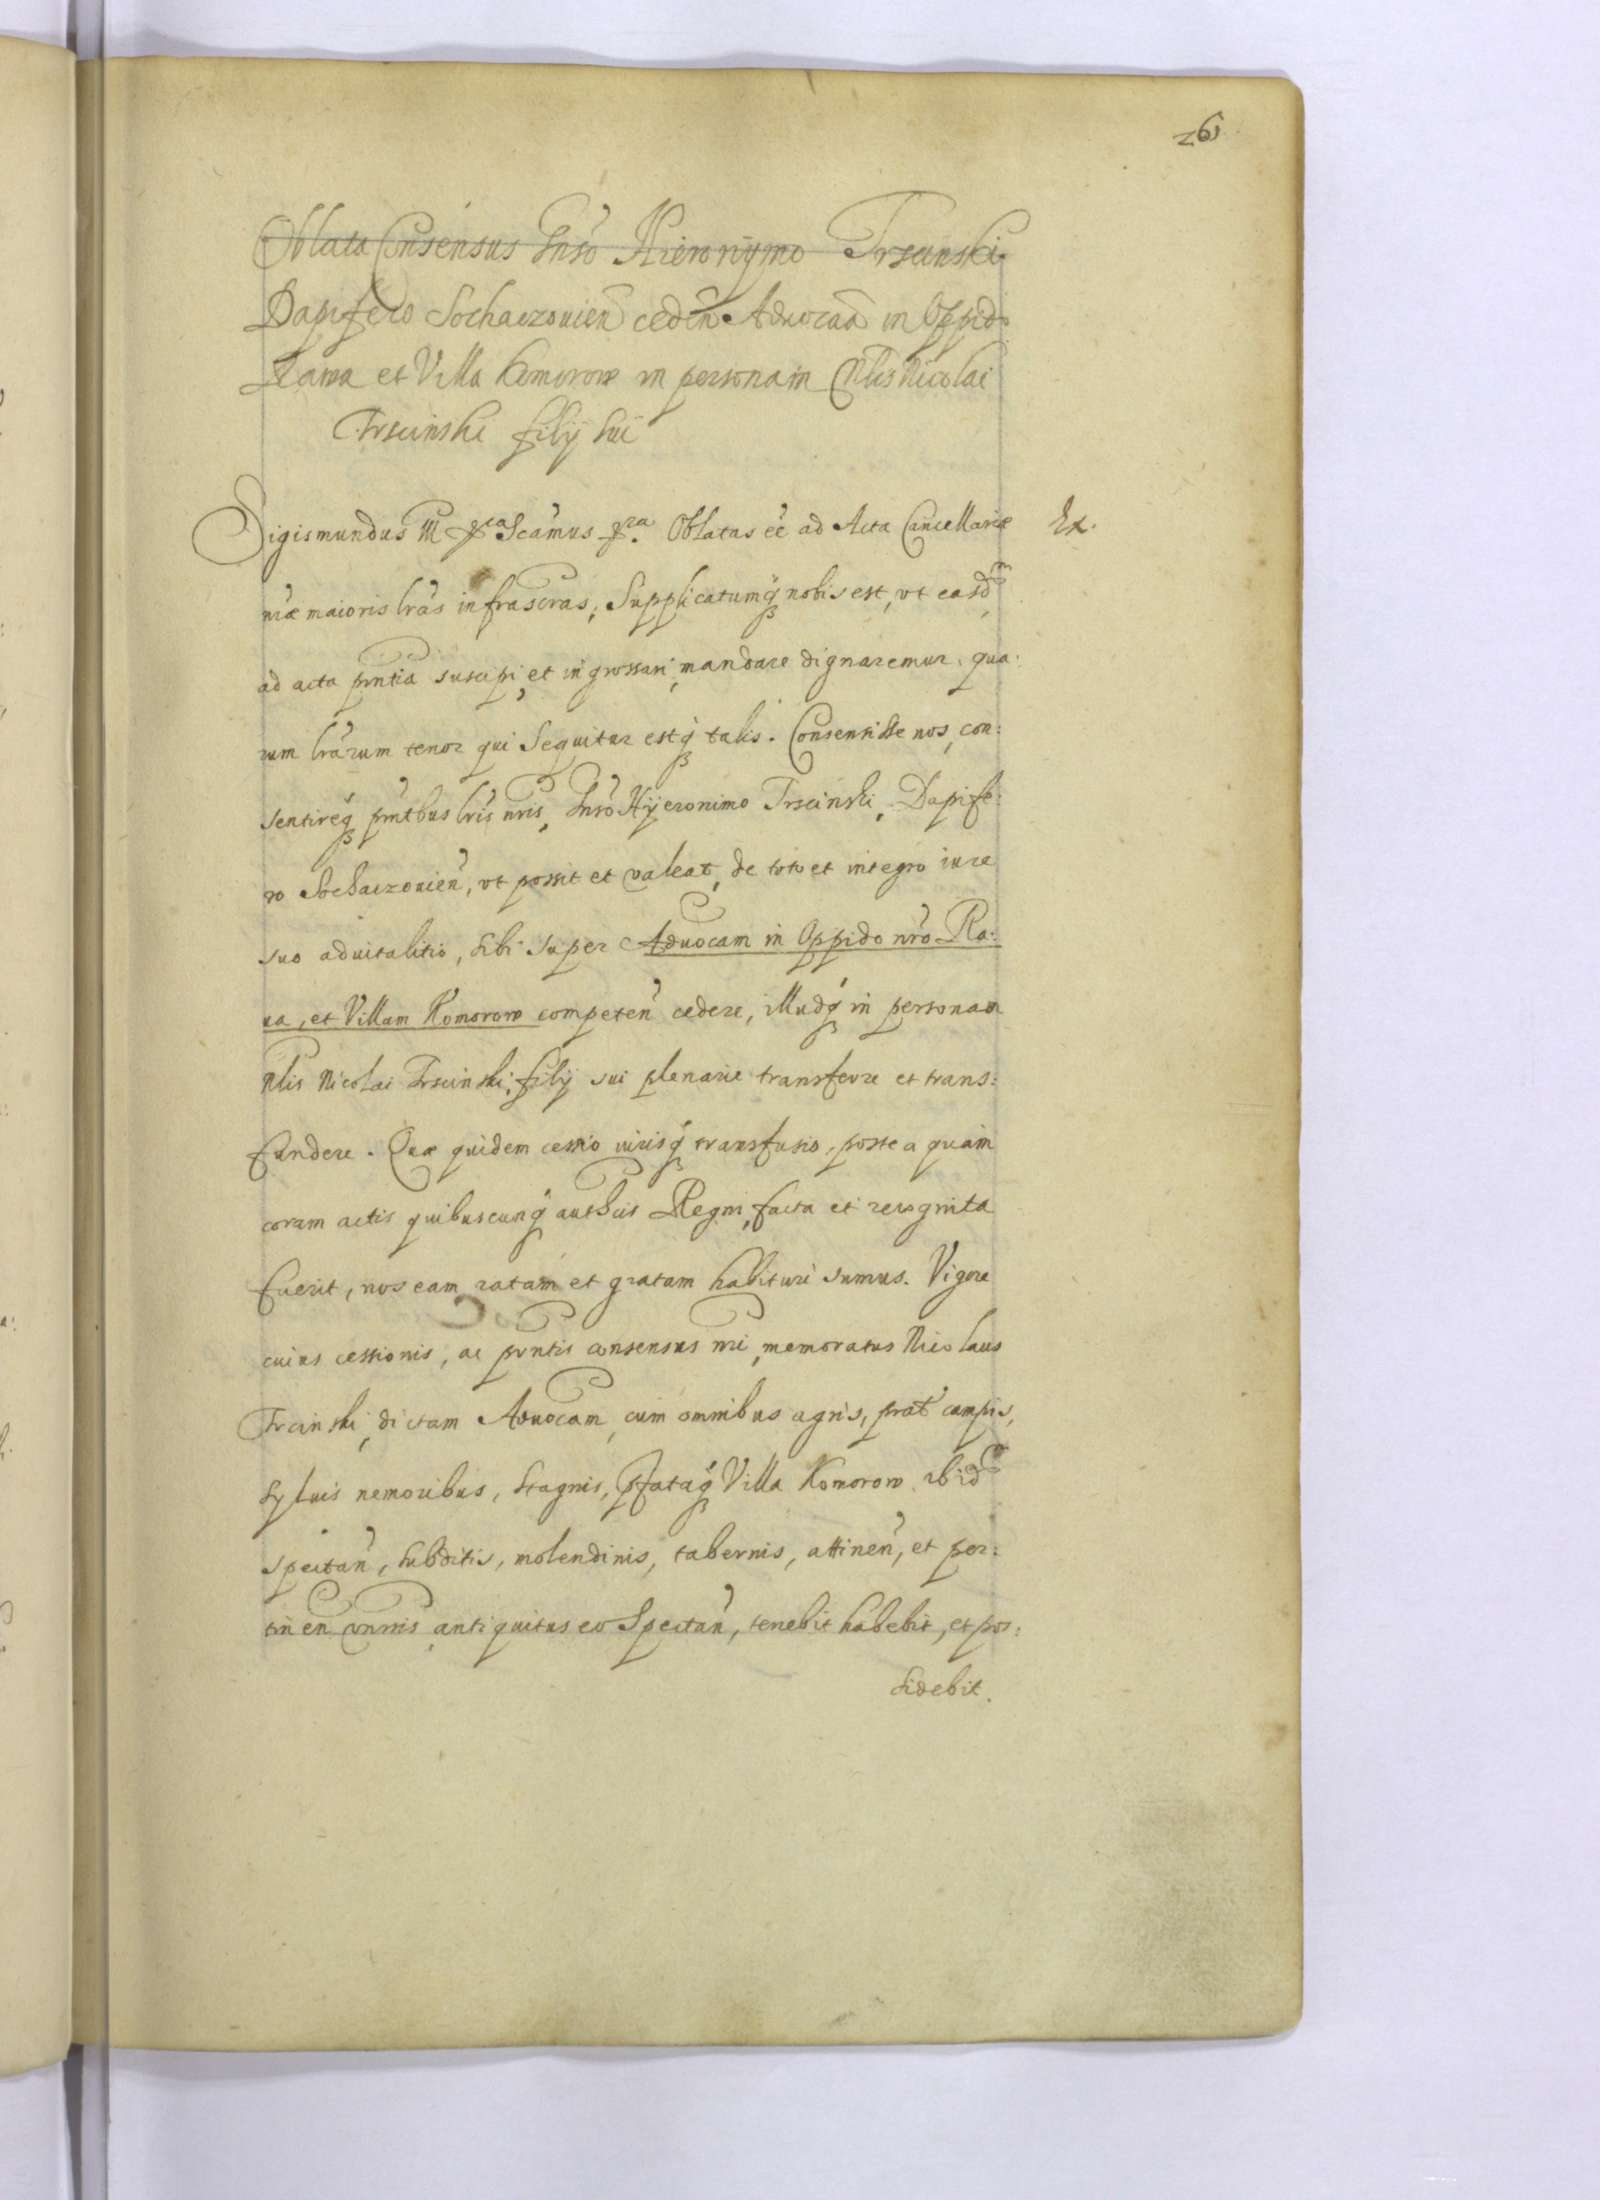 26
Oblata Consensus Gnso Hieronymo Trscinski
Dapifero Sochaczouien cedên Aduocaã in Oppido
Rawa et Villa Komorow in personam Nlis Nicolai
Trscinski filij sui
Sigismundus III gra Scamus qra. Oblatas ee ad Acta Cancellariæ
Ex.
nræ maioris lras infrascras, Supplicatumq nobis est, vt easdm
ad acta pntia suscipi et ingrossari mandare dignaremur, qua:
rum lrarum tenor qui Sequitur estq talis. Consensisse nos, con:
sentireq pntbus lris nris, Gnso Hÿeronimo Trscinski, Dapife:
ro Sochaczouien, vt possit et valeat, de toto et integro iure
suo aduitalitio, sibi super Aduocam in Oppido nro Ra:
ua, et Villam Komorow competen cedere, illudq in personam
Nlis Nicolai Trscinski, filij sui plenarie transferre et trans:
fundere. Quæ quidem cessio iurisq transfusio, postea quam
coram actis quibuscunq authcis Regni, facta et recognita
fuerit, nos eam ratam et gratam habituri sumus. Vigore
cuius cessionis, ac pntis consensus nri, memoratus Nicolaus
Trcinski, dictam Aduocam, cum omnibus agris, prat campis,
syluis nemoribus, stagnis, pfataq Villa Komorow ibidm
spectan, subditis, molendinis, tabernis, attinen, et per:
tinen omnis antiquitus eo Spectan, tenebit habebit, et pos:
sidebit.